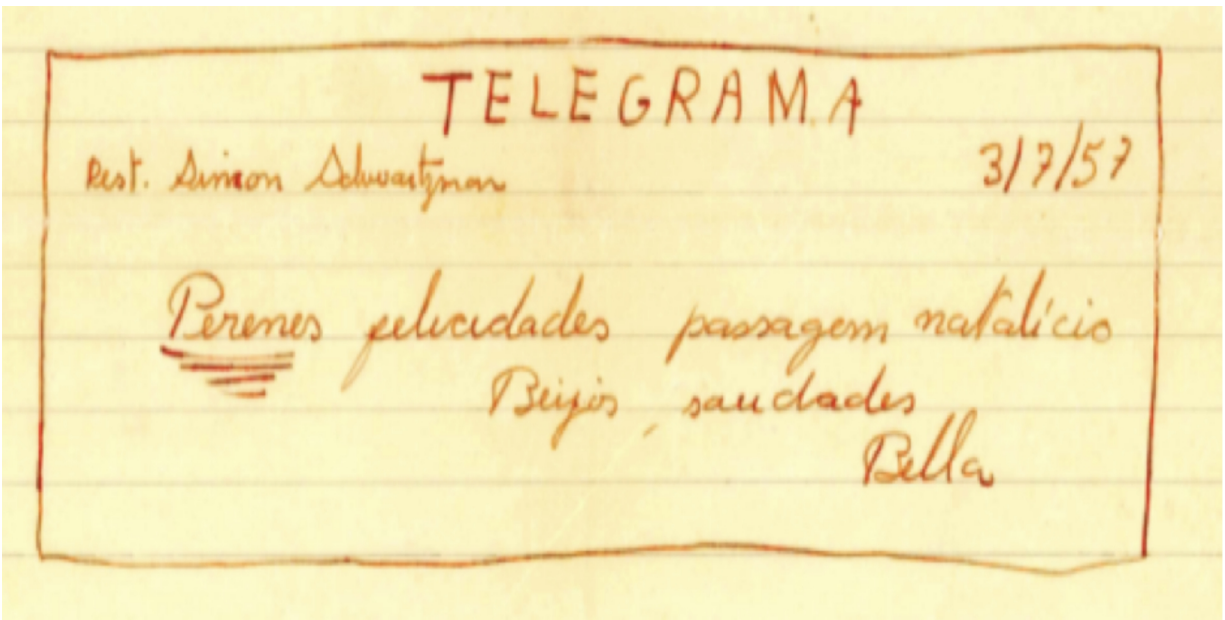 TELEGRAMA
Dest. Simon Schwartzman 3/7/57
Perenes felicidades passagem natalício
Beijos, saudades
Bella